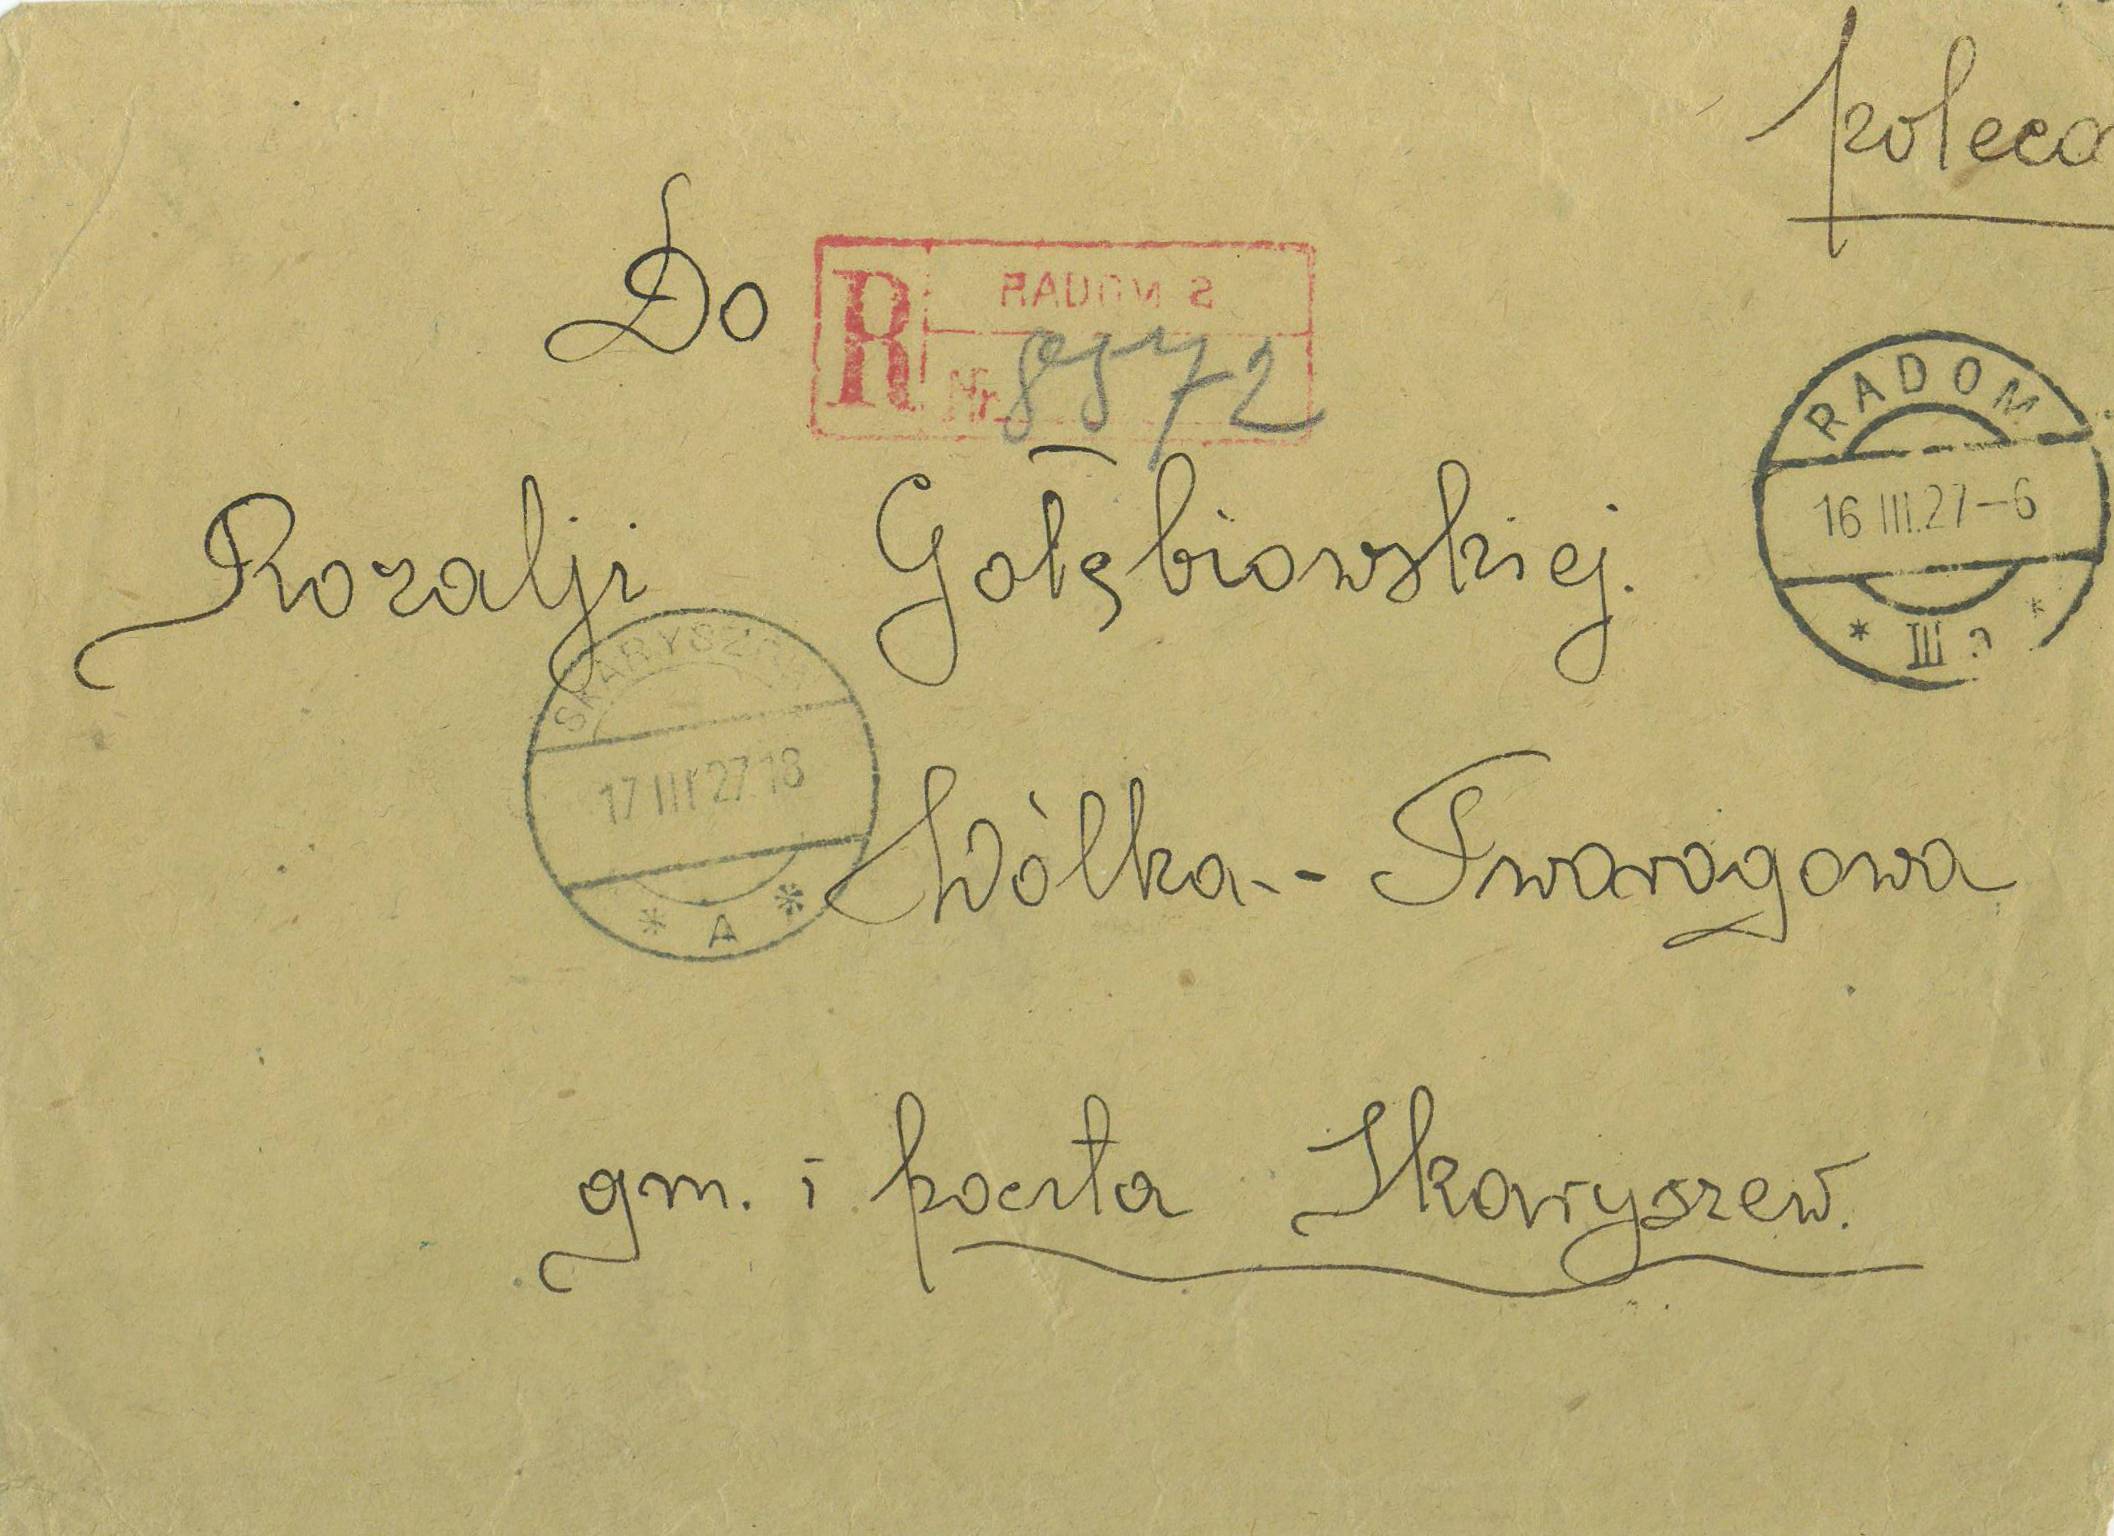 poleca
Do
R RADOM 2
Nr. 8572
RADOM
16 III.27-6
* III a *
Rozalji Gołębiowskiej.
SKARYSZEW
17 III 27 18
* A *
Wólka-- Twarogowa
gm. i poczta Skaryszew.